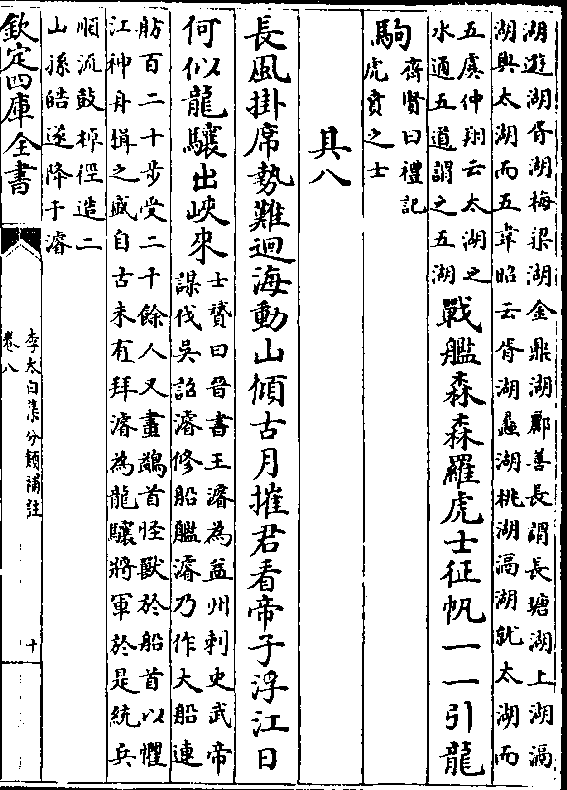 湖遊湖胥湖梅梁湖金鼎湖酈善長謂長塘湖上湖滆
湖與太湖而五韋昭云胥湖蠡湖桃湖滆湖就太湖而
五虞仲翔云太湖之
水通五道謂之五湖
戰艦森森羅虎士征帆一一引龍
駒
齊賢曰禮記
虎賁之士
其八
長風掛席勢難迴海動山傾古月摧君看帝子浮江日
何似龍驤出峽來
士贇曰晉書王濬為益州刺史武帝
謀伐吳詔濬修船艦濬乃作大船連
舫百二十步受二千餘人又畫鷁首怪獸於船首以懼
江神舟楫之盛自古未有拜濬為龍驤將軍於是統兵
順流鼓棹徑造二
山孫皓遂降于濬
欽定四庫全書
李太白集分類補註
卷八
十